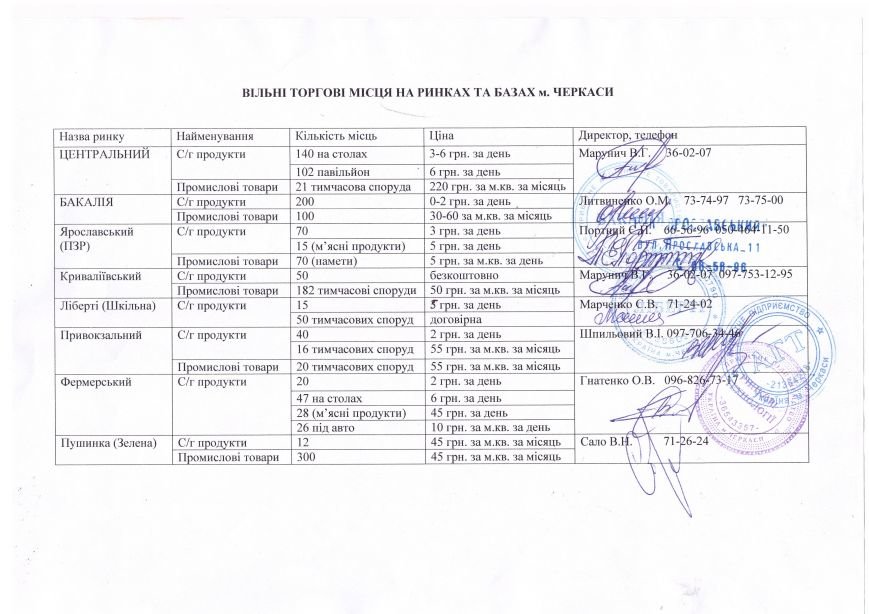 ВІЛЬНІ ТОРГОВІ МІСЦЯ НА РИНКАХ ТА БАЗАХ м. ЧЕРКАСИ
Назва ринку Найменування Кількість місць Ціна Директор, телефон
ЦЕНТРАЛЬНИЙ С/г продукти 140 на столах 3-6 грн. за день Марунич В.Г. 36-02-07
102 павільйон 6 грн. за день
Промислові товари 21 тимчасова споруда 220 грн. за м.кв. за місяць
БАКАЛІЯ С/г продукти 200 0-2 грн. за день Литвиненко О.М. 73-74-97 73-75-00
Промислові товари 100 30-60 за м.кв. за місяць
Ярославський С/г продукти 70 3 грн. за день Портний С.П. 66-56-96
(ПЗР) 15 (м’ясні продукти) 5 грн. за день ВУЛ.ЯРОСЛАВСЬКА_11
Промислові товари 70 (намети) 5 грн. за м.кв. за день
Криваліївський С/г продукти 50 безкоштовно Марунич В.Г. 36-02-07 097-753-12-95
Промислові товари 182 тимчасові споруди 50 грн. за м.кв. за місяць
Ліберті (Шкільна) С/г продукти 15 5 грн. за день Марченко С.В. 71-24-02
50 тимчасових споруд договірна
Привокзальний С/г продукти 40 2 грн. за день Шпильовий В.І. 097-706-34-46
16 тимчасових споруд 55 грн. за м.кв. за місяць
Промислові товари 20 тимчасових споруд 55 грн. за м.кв. за місяць
Фермерський С/г продукти 20 2 грн. за день Гнатенко О.В. 096-826-73-17
47 на столах 6 грн. за день
28 (м’ясні продукти) 45 грн. за день
26 під авто 10 грн. за м.кв. за день
Пушинка (Зелена) С/г продукти 12 45 грн. за м.кв. за місяць Сало В.Н. 71-26-24
Промислові товари 300 45 грн. за м.кв. за місяць